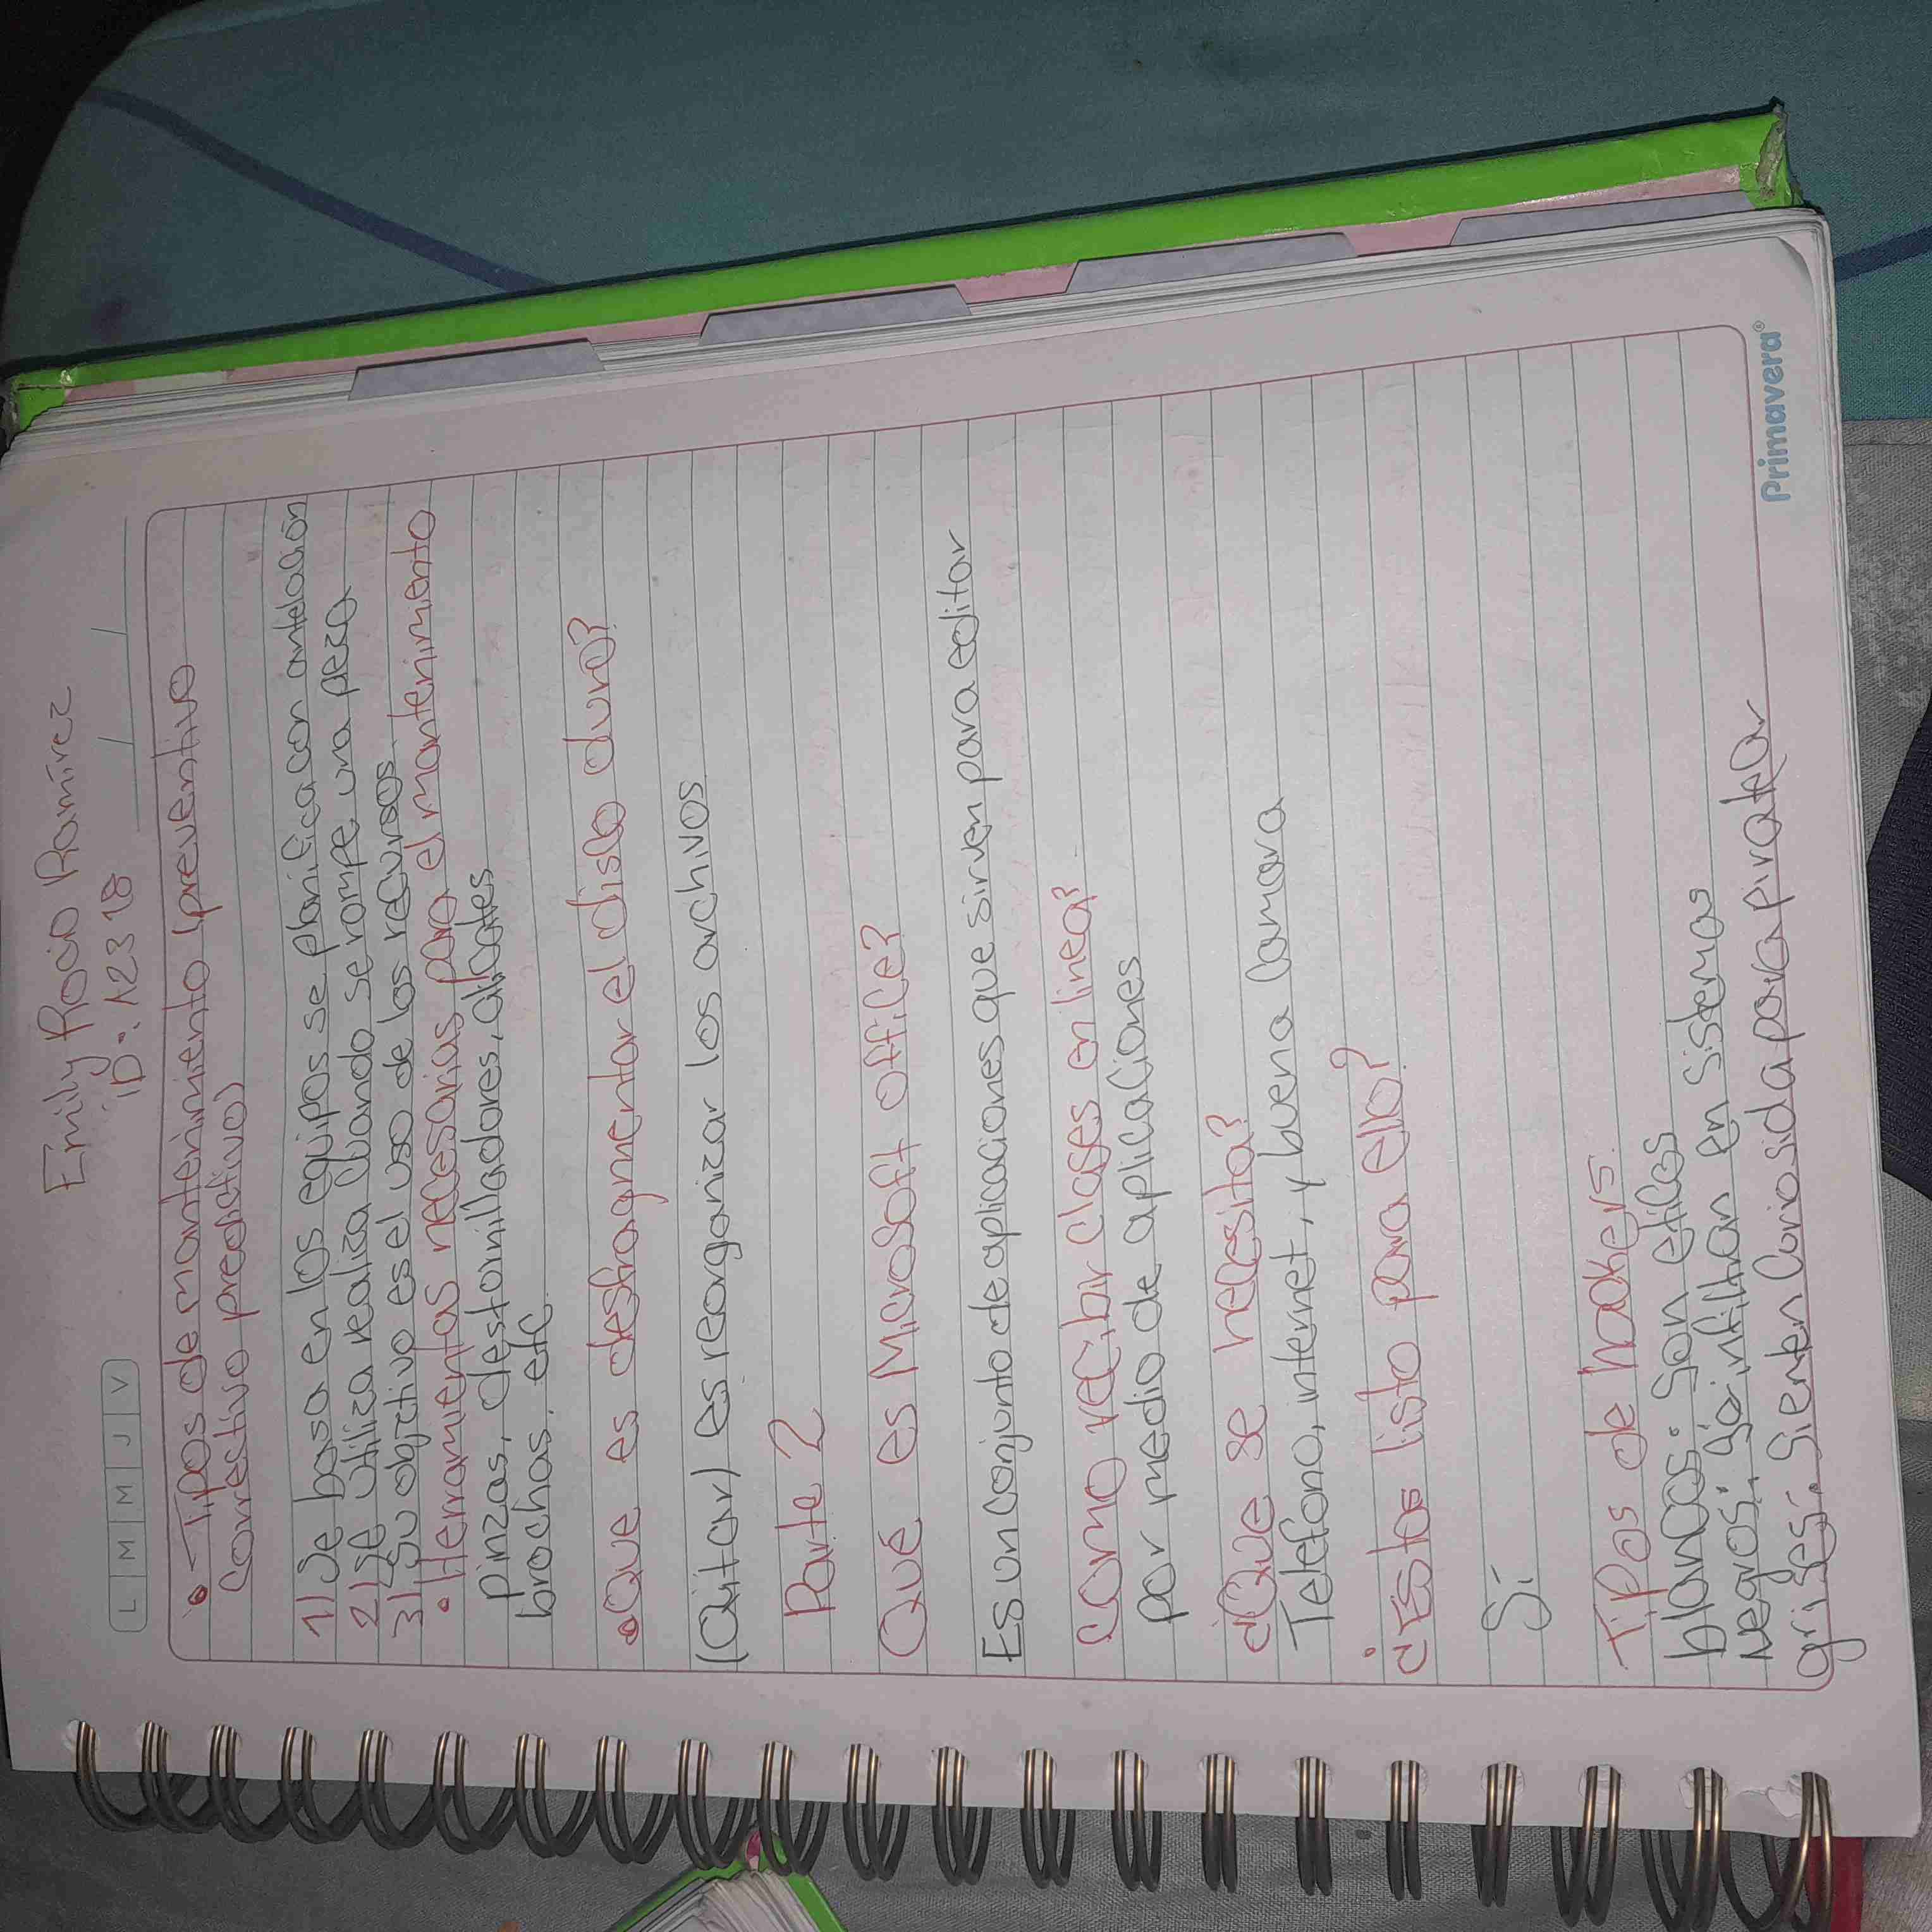 Emily Rocio Ramírez
iD: 12318
L M M J V
• Tipos de mantenimiento (preventivo
correctivo predictivo)
1) Se basa en los equipos se planifica con antelación
2) Se utiliza realiza cuando se rompe una peza
3) Su objetivo es el uso de los recursos.
• Herramientas necesarias para el mantenimiento
pinzas, destornilladores, alicates
brochas, etc
• Que es desfragmentar el disco duro?
(Quitar) es reorganizar los archivos
Parte 2
Qué es Microsoft office?
Es un conjunto de aplicaciones que sirven para editar
Como recibir clases en linea?
por medio de aplicaciones
¿Que se necesita?
Telefono, internet, y buena camara
¿Estas listo para ello?
Si
Tipos de hackers.
blancos: Son eticos
Negros: Se infiltran en sistemas
grises: Sienten curiosida para piratear
Primavera®